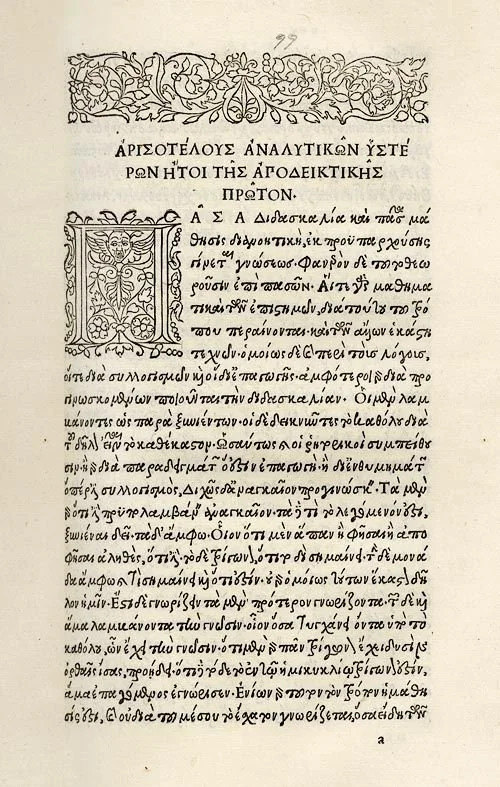 99
ἈΡΙΣΟΤΈΛΟΥΣ ἈΝΑΛΥΤΙΚΩ͂Ν ὙΣΤΈ
ΡΩΝ ἬΤΟΙ ΤΗ͂Σ ἈΠΟΔΕΙΚΤΙΚΗ͂Σ
ΠΡΩ͂ΤΟΝ·
ΠΑ͂ΣΑ διδασκαλία καὶ πᾶσα μά
θησις διανοητικὴ, ἐκ προϋπαρχούσης
γίνεται γνώσεως· Φανερὸν δὲ τοῦτο θεω
ροῦσιν ἐπὶ πασῶν· Αἵ τε γὰρ μαθημα
τικαὶ τῶν ἐπιστημῶν, διὰ τούτου τοῦ τρό
που περαίνονται· καὶ τῶν ἄλλων ἑκάστη
τεχνῶν· ὁμοίως δὲ καὶ περὶ τοὺς λόγους,
οἵ τε διὰ συλλογισμῶν καὶ οἱ δι' ἐπαγωγῆς· ἀμφότεροι γὰρ διὰ προ
γινωσκομένων ποιοῦνται τὴν διδασκαλίαν· Οἱ μὲν λαμ
βάνοντες ὡς παρὰ ξωιέντων· οἱ δὲ δεικνῦντες τὸ καθόλου διὰ
τοῦ δῆλον εἶναι τὸ καθ' ἕκαστον· Ὡσαύτως δὲ καὶ οἱ ῥητορικοὶ συμπείθου
σιν· ἢ γὰρ διὰ παραδειγμάτων ὅ ἐστιν ἐπαγωγὴ, ἢ δι' ἐνθυμημάτων
ὅπερ ἐστὶ συλλογισμὸς, Διχῶς δ' ἀναγκαῖον προγινώσκειν· Τὰ μὲν
γὰρ ὅτι ἐστὶ προϋπολαμβάνειν ἀναγκαῖον· τὰ δὲ τί τὸ λεγόμενόν ἐστι
ξωιέναι δεῖ· τὰ δ' ἄμφω· Οἷον ὅτι μὲν ἅπαν ἢ φῆσαι ἢ ἀπο
φῆσαι ἀληθὲς, ὅτι ἐστί· τὸ δὲ τρίγωνον, ὅτι τοδὶ σημαίνει· τὴν δὲ μονά
δα ἄμφω, καὶ τί σημαίνει καὶ ὅτι ἐστίν· οὐ γὰρ ὁμοίως τούτων ἕκαστον δῆ
λον ἡμῖν· Ἔστι δὲ γνωρίζειν τὰ μὲν πρότερον γνωρίζοντα· τῶν δὲ καὶ
ἅμα λαμβάνοντα τὴν γνῶσιν· οἷον ὅσα τυγχάνει ὄντα ὑπὸ τὸ
καθόλου, ὧν ἔχει τὴν γνῶσιν· ὅτι μὲν γὰρ πᾶν τρίγωνον ἔχει δυσὶν
ὀρθαῖς ἴσας, προῄδει· ὅτι δὲ τόδε τὸ ἐν τῷ ἡμικυκλίῳ τρίγωνόν ἐστιν,
ἅμα ἐπαγόμενος ἐγνώρισεν· Ἐνίων γὰρ τοῦτον τὸν τρόπον ἡ μάθη
σίς ἐστι, καὶ οὐ διὰ τοῦ μέσου τὸ ἔσχατον γνωρίζεται, ὅσα ἤδη τῶν
a